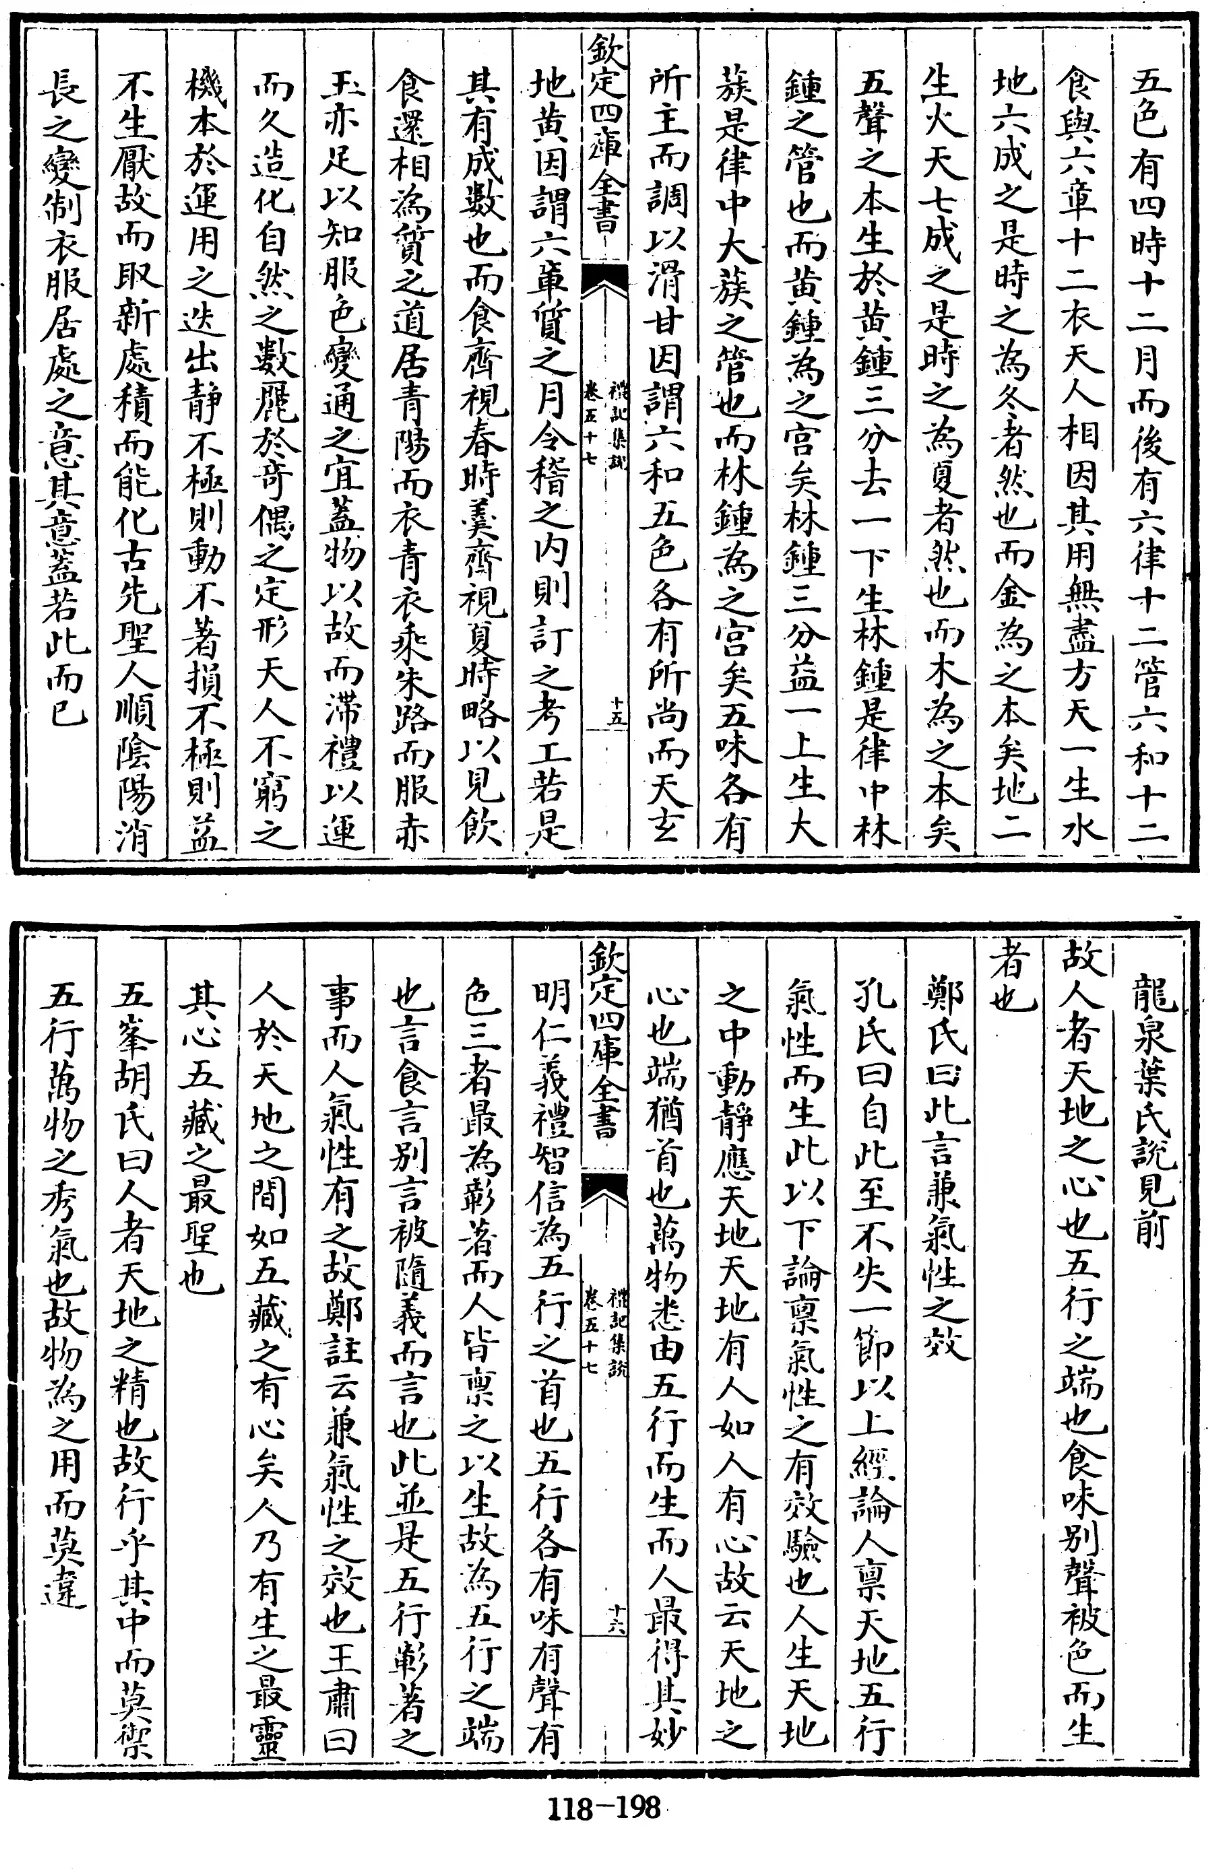 五色有四時十二月而後有六律十二管六和十二
食與六章十二衣天人相因其用無盡方天一生水
地六成之是時之為冬者然也而金為之本矣地二
生火天七成之是時之為夏者然也而木為之本矣
五聲之本生於黄鍾三分去一下生林鍾是律中林
鍾之管也而黄鍾為之宫矣林鍾三分益一上生大
蔟是律中大蔟之管也而林鍾為之宫矣五味各有
所主而調以滑甘因謂六和五色各有所尚而天玄
欽定四庫全書
禮記集説
卷五十七
十五
地黄因謂六章質之月令稽之内則訂之考工若是
其有成數也而食齊視春時羮齊視夏時略以見飲
食還相為質之道居青陽而衣青衣乘朱路而服赤
玉亦足以知服色變通之宜蓋物以故而滯禮以運
而久造化自然之數麗於竒偶之定形天人不窮之
機本於運用之迭出静不極則動不著損不極則益
不生厭故而取新處積而能化古先聖人順陰陽消
長之變制衣服居處之意其意蓋若此而已
龍泉葉氏説見前
故人者天地之心也五行之端也食味别聲被色而生
者也
鄭氏曰此言兼氣性之效
孔氏曰自此至不失一節以上經論人禀天地五行
氣性而生此以下論禀氣性之有效驗也人生天地
之中動靜應天地天地有人如人有心故云天地之
心也端猶首也萬物悉由五行而生而人最得其妙
欽定四庫全書
禮記集説
卷五十七
十六
明仁義禮智信為五行之首也五行各有味有聲有
色三者最為彰著而人皆禀之以生故為五行之端
也言食言别言被隨義而言也此並是五行彰著之
事而人氣性有之故鄭註云兼氣性之效也王肅曰
人於天地之間如五藏之有心矣人乃有生之最靈
其心五藏之最聖也
五峯胡氏曰人者天地之精也故行乎其中而莫禦
五行萬物之秀氣也故物為之用而莫違
118-198